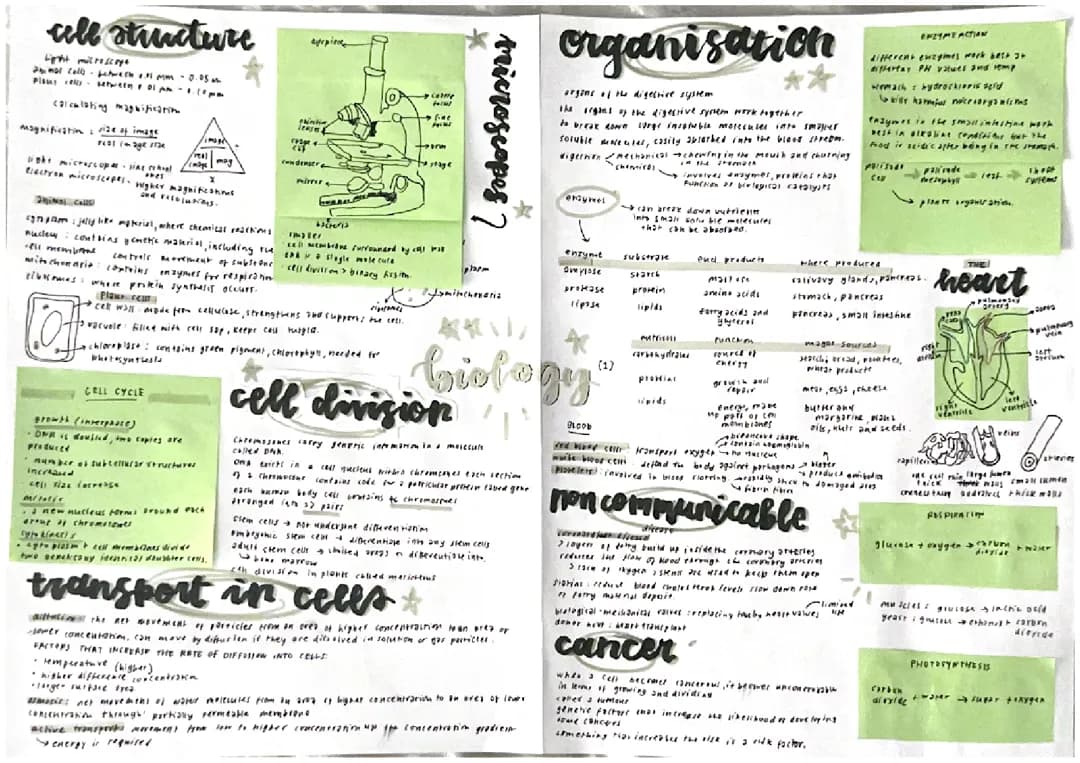 cell structure
light microscope
animal cells - between 0.01 mm - 0.05 mm
plant cells - between 0.01 mm - 0.10 mm
calculating magnification
magnification = size of image
real image size
image
real image
mag
x
electron microscopes - higher magnifications
and resolutions.
animal cells
cytoplasm : jelly like material, where chemical reactions
nucleus : contains genetic material, including the
cell membrane controls movement of
mitochondria : contains enzymes for
ribosomes : where protein synthesis occurs.
plant cells
cell wall : made from cellulose, strengthens and supports the cell.
vacuole : filled with cell sap, keeps cell turgid.
chloroplast : contains green pigment, chlorophyll, needed for
photosynthesis
mitochondria
ribosomes
microscopes
eyepiece
coarse
focus
fine
focus
objective
lenses
arm
stage
condenser
mirror
bacteria
smaller
cell membrane surrounded by cell wall
DNA is a single molecule
cell division > binary fission.
CELL CYCLE
growth (interphase)
• DNA is doubled, two copies are
produced
• number of subcellular structures
increase
cell size increase
mitosis
a new nucleus forms around each
group of chromosomes
cytokinesis
• cytoplasm + cell membranes divide
two genetically identical daughter cells.
cell division
chromosomes carry genetic information in a molecule
called DNA.
DNA exists in a cell nucleus within chromosomes each section
of a chromosome contains code for a particular protein called gene
each human body cell contains 46 chromosomes
arranged into 23 pairs
stem cells → not undergone differentiation
embryonic stem cell → differentiate into any stem cells
adult stem cells → limited areas
bone marrow
cell division in plants called meristems
transport in cells
diffusion : the net movement of particles from an area of higher concentration to an area of
lower concentration, can move by diffusion if they are dissolved in solution or gas particles.
FACTORS THAT INCREASE THE RATE OF DIFFUSION INTO CELLS:
• temperature (higher)
• higher difference concentration
• larger surface area
osmosis : net movement of water molecules from an area of higher concentration to an area of lower
concentration through partially permeable membrane
active transport : movement from low to higher concentration up the concentration gradient
energy is required
biology
(1)
organisation
organs of the digestive system
the organs of the digestive system work together
to break down large insoluble molecules into smaller
soluble molecules, easily absorbed into the blood stream.
digestion mechanical → chewing in the mouth and churning
in the stomach
chemical
involves enzymes, proteins that
function as biological catalysts
enzymes
can break down nutrients
into small soluble molecules
that can be absorbed.
enzyme substrate products where produced
amylase starch maltose salivary glands, pancreas.
protease protein amino acids stomach, pancreas
lipase lipids fatty acids and glycerol pancreas, small intestine
nutrient function major sources
carbohydrates source of energy bread, potatoes, wheat products
proteins growth and repair meat, eggs, cheese
lipids energy, make up part of cell membranes butter and margarine, plant oils, nuts and seeds.
BLOOD
red blood cells : transport oxygen
biconcave shape
contain haemoglobin
no nucleus
white blood cells : defend the body against pathogens
produce antibodies
platelets : involved in blood clotting
fibrin fibres
ENZYME ACTION
different enzymes work best at
different PH values and temp
stomach : hydrochloric acid
kills harmful microorganisms
enzymes in the small intestine work
best in alkaline conditions but the
food is acidic after being in the stomach.
palisade
cell
palisade
mesophyll
leaf
shoot
systems
plants organisation.
THE
heart
pulmonary
artery
aorta
pulmonary
vein
left
atrium
right
atrium
right
ventricle
left
ventricle
veins
arteries
capillaries
large lumen
small lumen
thick walls
non communicable
disease
layers of fatty build up inside the coronary arteries
reduces the flow of blood through the coronary arteries
lack of oxygen : stents are used to keep them open
statins : reduce blood cholesterol levels slow down rate
of fatty material deposit.
biological + mechanical valves : replacing faulty heart valves
limited
life
donor heart : heart transplant
RESPIRATION
glucose + oxygen → carbon dioxide + water
muscles : glucose → lactic acid
yeast : glucose → ethanol + carbon
dioxide
cancer
when a cell becomes cancerous, it becomes uncontrollable
in terms of growing and dividing
called a tumour
genetic factors that increase the likelihood of developing
some cancers
something that increases the risk is a risk factor.
PHOTOSYNTHESIS
carbon
dioxide + water → sugar + oxygen